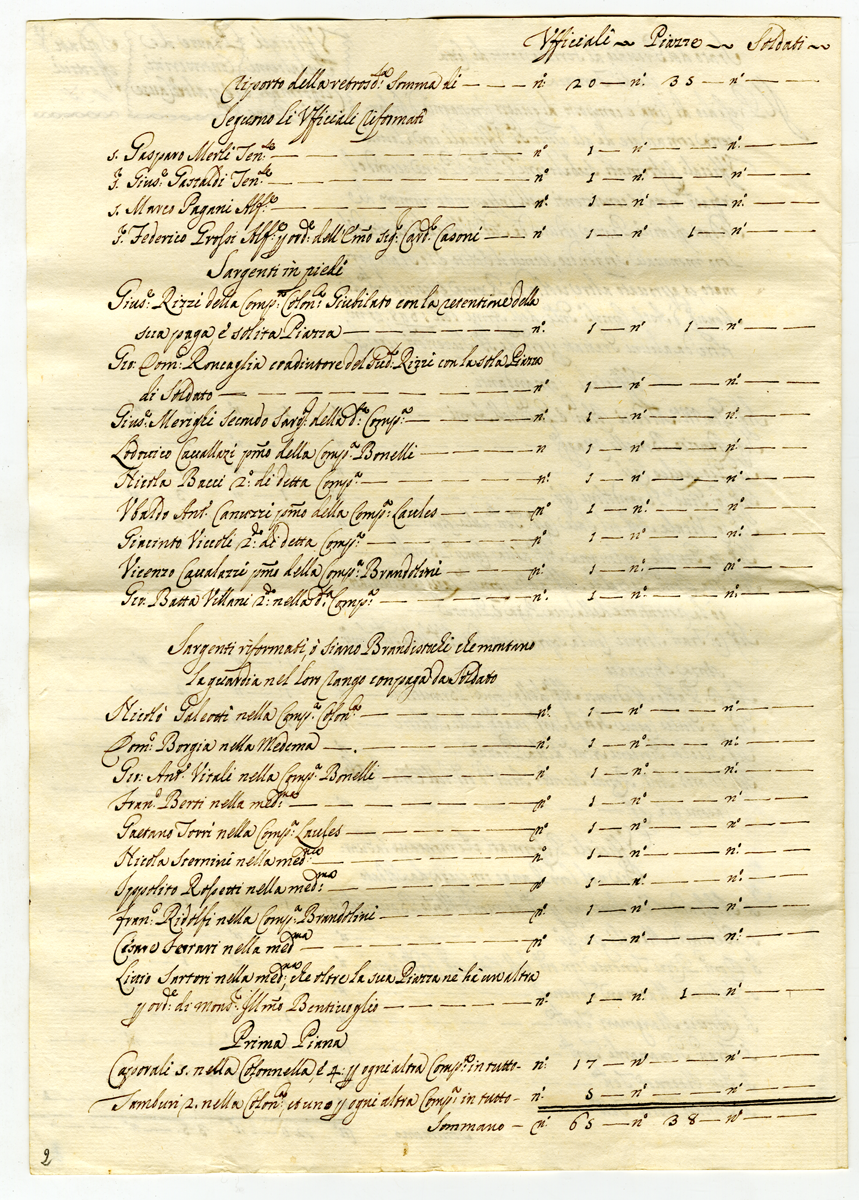 Ufficiali ~ Piazze ~ Soldati ~
Riporto della retroscta. Somma di — — — n.° 20 — n.° 35 — n.° — —
Seguono li Ufficiali Riformati
s. Gasparo Merli Tente. — n.° 1 — n.° — n.° —
s. Gius.e Gastaldi Tente. — n.° 1 — n.° — n.° —
s. Marco Pagani Alf.e — n.° 1 — n.° — n.° —
s. Federico Grossi Alf.e p ord.e dell'Emo sig.r Card.e Casoni — n.° 1 — n.° 1 — n.° —
Sargenti in piedi
Gius.e Rizzi della Comp.a Colon.a Giubilato con la retentione della
sua paga, è solita Piazza — n.° 1 — n.° 1 — n.° —
Gio: Dom.o Roncaglia coadiutore del sud.o Rizzi con la sola Piazza
di Soldato — n.° 1 — n.° — n.° —
Gius.e Merighi secondo Sarg.e della d.a Comp.a — n.° 1 — n.° — n.° —
Lodovico Cavallazzi pmo della Comp.a Bonelli — n 1 — n.° — n.° —
Nicola Bacci 2.° di detta Comp.a — n.° 1 — n.° — n.° —
Ubaldo Ant.o Canuzzi pmo della Comp.a Laules — n.° 1 — n.° — n.° —
Giacinto Viccoli 2.do di detta Comp.a — n.° 1 — n.° — n.° —
Vicenzo Cavalazzi pmo della Comp.a Brandolini — n.° 1 — n.° — n.° —
Gio: Batta Villani 2.do nella d.a Comp.a — n.° 1 — n.° — n.° —
Sargenti riformati, ò siano Brandistochi che montano
la guardia nel loro rango con paga da Soldato
Nicolò Galeotti nella Comp.a Colon.a — n.° 1 — n.° — n.° —
Dom.o Borgia nella Medema — n.° 1 — n.° — n.° —
Gio: Ant.o Vitali nella Comp.a Bonelli — n.° 1 — n.° — n.° —
Fran.o Berti nella med.ma — n.° 1 — n.° — n.° —
Gaetano Torri nella Comp.a Laules — n.° 1 — n.° — n.° —
Nicola Scernini nella med.ma — n.° 1 — n.° — n.° —
Ippolito Rossetti nella med.ma — n.° 1 — n.° — n.° —
Fran.o Ridolfi nella Comp.a Brandolini — n.° 1 — n.° — n.° —
Cesare Ferrari nella med.ma — n.° 1 — n.° — n.° —
Livio Sartori nella med.ma, che oltre la sua Piazza nè hà un altra
p ord.e di Mons.r Illmo Bentivoglio — n.° 1 — n.° 1 — n.° —
Prima Piana
Caporali 5. nella Colonnella, è 4. p ogni altra Comp.a in tutto — n.° 17 — n.° — n.° —
Tamburi 2. nella Colon.a, et uno p ogni altra Comp.a in tutto — n.° 5 — n.° — n.° —
Sommano — n.° 65 — n.° 38 — n.° —
2